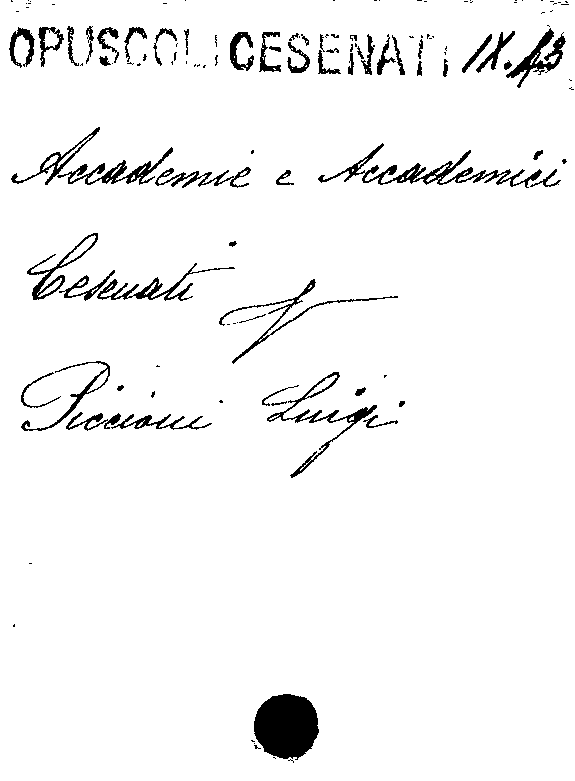 OPUSCOLI CESENATI IX.
Accademie e Accademici
Cesenati V
Piccioni Luigi